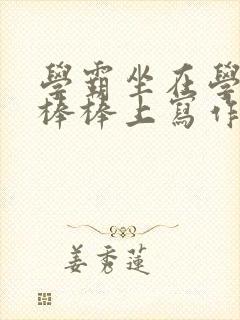 學霸坐在學
棒棒上寫作
姜秀蓮